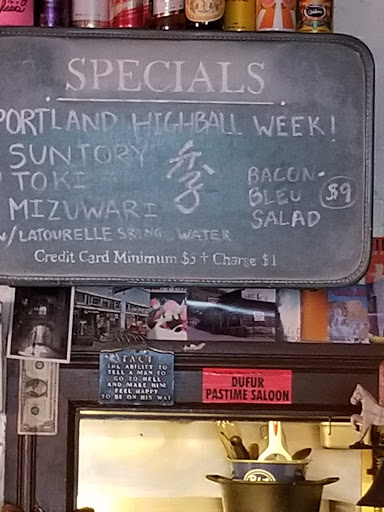 SPECIALS
PORTLAND HIGHBALL WEEK!
SUNTORY
TOKI
MIZUWARI
W/LATOURELLE SPRING WATER
BACON-
BLEU
SALAD
$9
Credit Card Minimum $5 + Charge $1
TACT
THE ABILITY TO
TELL A MAN TO
GO TO HELL
AND MAKE HIM
FEEL HAPPY
TO BE ON HIS WAY
DUFUR
PASTIME SALOON